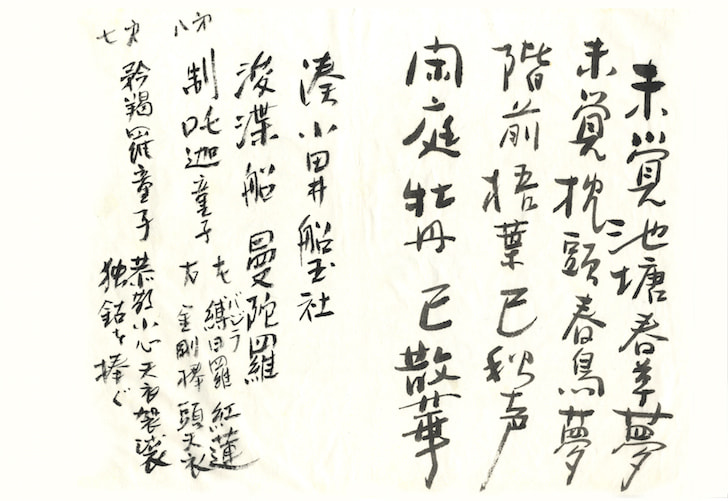 未覚池塘春草夢
未覚枕頭春鳥夢
階前梧葉已秋声
閑庭牡丹已散華
湊小田井船玉社
浚渫船 曼陀羅
八才 制吒迦童子 左 縛日羅 紅蓮
バジラ
右 金剛棒 頭天衣
七才 矜羯羅童子 恭敬小心天衣袈裟
独鈷を捧ぐ